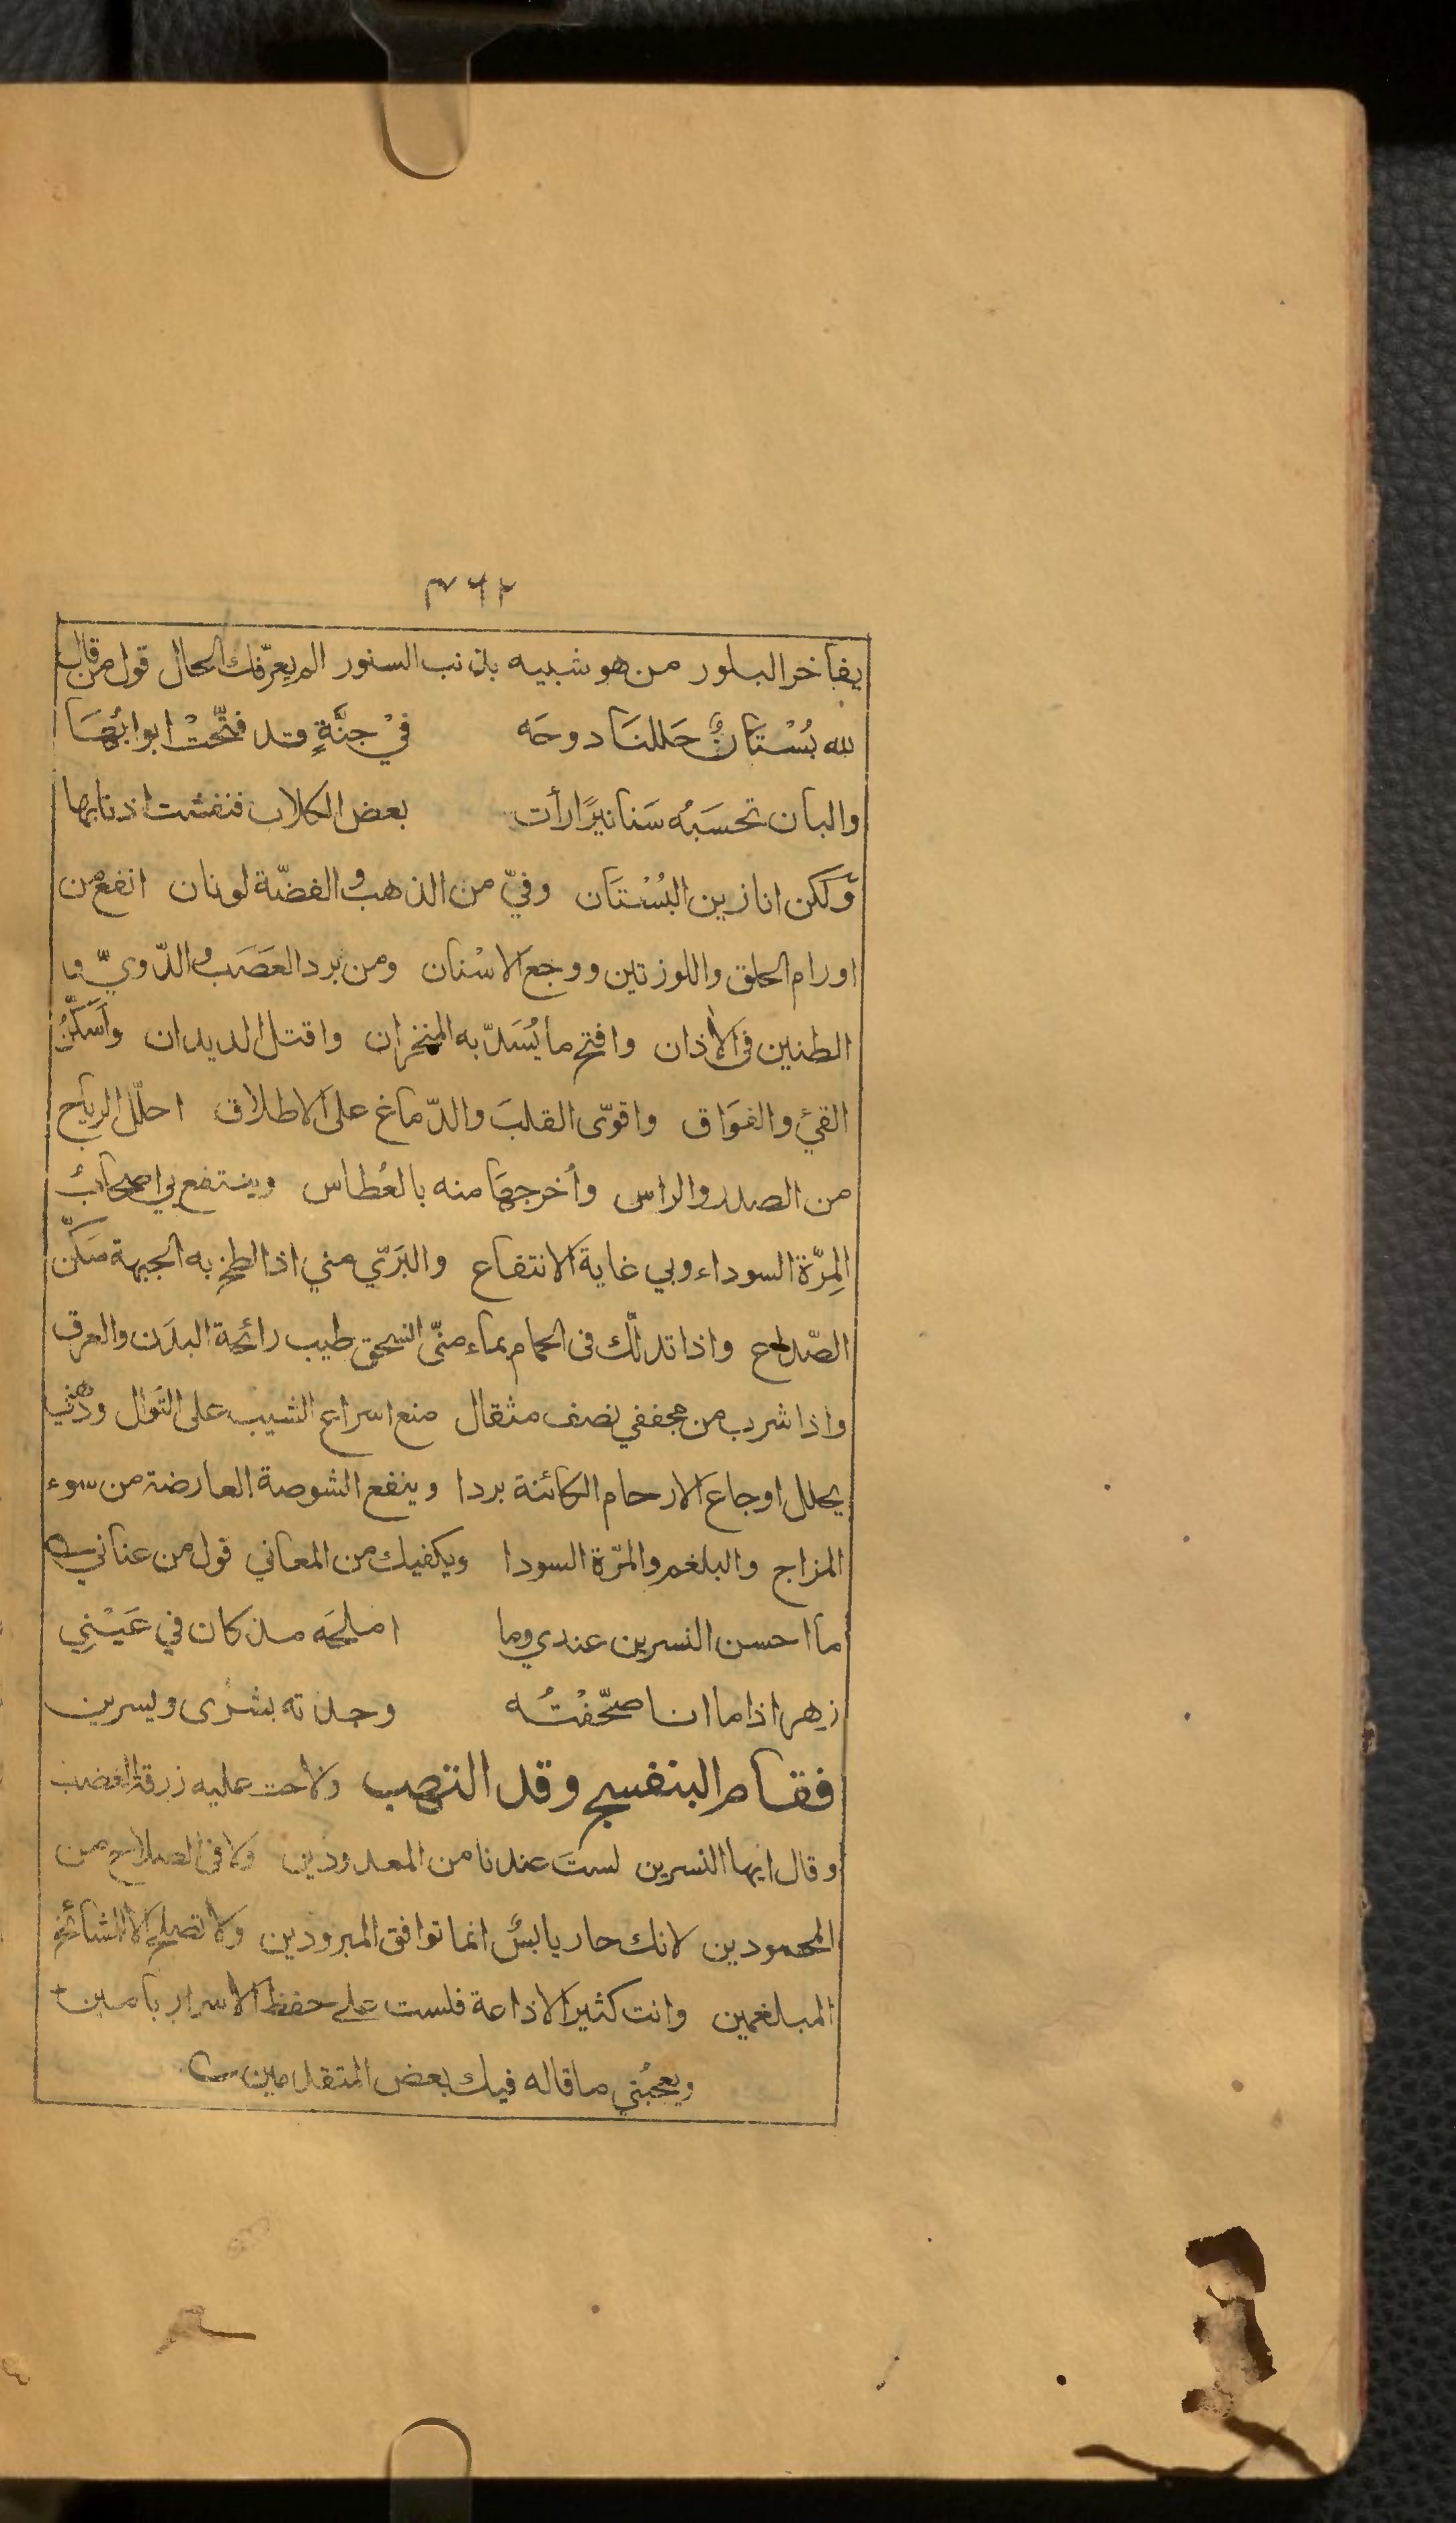 ٣٦٢
يفاخر البلور من هو شبيه بذنب السنور الم يعرّفك الحال قول من قال
لله بُسْتَانٌ حَللنَا دوحَه في جنَّةٍ وقد فتّحتْ ابوابُهَا
والبان تحسَبُه سَنانيرًا رأت بعض الكلاب فنفشت اذنابها
ولكن انا زين البُسْتَان وفيّ من الذهب والفضّة لونان انفع من
اورام الحلق واللوزتين ووجع الاسْنان ومن برد العَصَب والدّويّ و
الطنين في الأذان وافتح ما يُسَدّ به المنخران واقتل الديدان وأسَكّنُ
القيئ والفوَاق واقوّى القلبَ والدّماغ على الاطلاق احلّل الرياح
من الصدر والراس وأخرجهَا منه بالعُطاس وينتفع بي اصحابُ
المِرّة السوداء وبي غاية الانتفاع والبَرّي مني اذا لطخ به الجبهة سَكّن
الصّداع واذا تدلّك في الحمام بماء منّى انسحق طيب رائحة البدَن والعرق
واذا شرب من مجففي نصف مثقال منع اسراع الشيب على التَوال ودُهْني
يحلل اوجاع الارحام الكائنة بردا وينفع الشوصة العارضة من سوء
المزاج والبلغم والمرّة السودا ويكفيك من المعاني قول من عناني
ما احسن النسرين عندي وما املحَه مذ كان في عَيْني
زهر اذا ما انا صحّفْتُه وجدته بشرى ويسرين
فقام البنفسج وقد التهب ولاحت عليه زرقة الغضب
وقال ايها النسرين لستَ عندنا من المعدودين ولا في الصلاح من
المحمودين لانك حار يابسٌ انما توافق المبرودين ولا تصلح الا للمشائخ
المبلغمين وانت كثير الاذاعة فلست على حفظ الاسرار بامين
ويعجبُني ما قاله فيك بعض المتقدمين